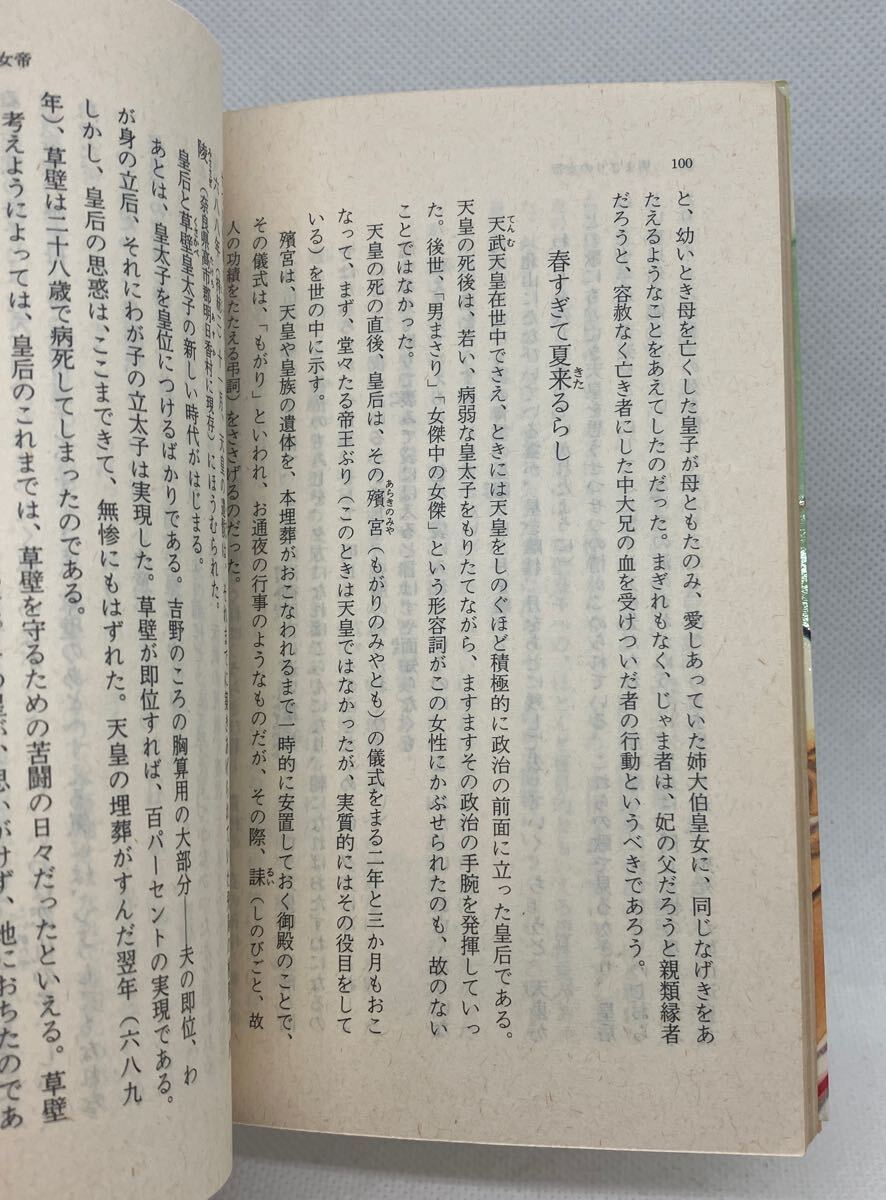 100
と、幼いとき母を亡くした皇子が母ともたのみ、愛しあっていた姉大伯皇女に、同じなげきをあ
たえるようなことをあえてしたのだった。まぎれもなく、じゃま者は、妃の父だろうと親類縁者
だろうと、容赦なく亡き者にした中大兄の血を受けついだ者の行動というべきであろう。
春すぎて夏来るらし
きた
天武天皇在世中でさえ、ときには天皇をしのぐほど積極的に政治の前面に立った皇后である。
てんむ
天皇の死後は、若い、病弱な皇太子をもりたてながら、ますますその政治の手腕を発揮していっ
た。後世、「男まさり」「女傑中の女傑」という形容詞がこの女性にかぶせられたのも、故のない
ことではなかった。
天皇の死の直後、皇后は、その殯宮（もがりのみやとも）の儀式をまる二年と三か月もおこ
あらきのみや
なって、まず、堂々たる帝王ぶり（このときは天皇ではなかったが、実質的にはその役目をして
いる）を世の中に示す。
殯宮は、天皇や皇族の遺体を、本埋葬がおこなわれるまで一時的に安置しておく御殿のことで、
その儀式は、「もがり」といわれ、お通夜の行事のようなものだが、その際、誄（しのびごと、故
るい
人の功績をたたえる弔詞）をささげるのだった。
女帝
陵（奈良県高市郡明日香村に現存）にほうむられた。
皇后と草壁皇太子の新しい時代がはじまる。
くさかべ
あとは、皇太子を皇位につけるばかりである。吉野のころの胸算用の大部分――夫の即位、わ
が身の立后、それにわが子の立太子は実現した。草壁が即位すれば、百パーセントの実現である。
しかし、皇后の思惑は、ここまできて、無惨にもはずれた。天皇の埋葬がすんだ翌年（六八九
年）、草壁は二十八歳で病死してしまったのである。
考えようによっては、皇后のこれまでは、草壁を守るための苦闘の日々だったといえる。草壁
が、思いがけず、地におちたのであ